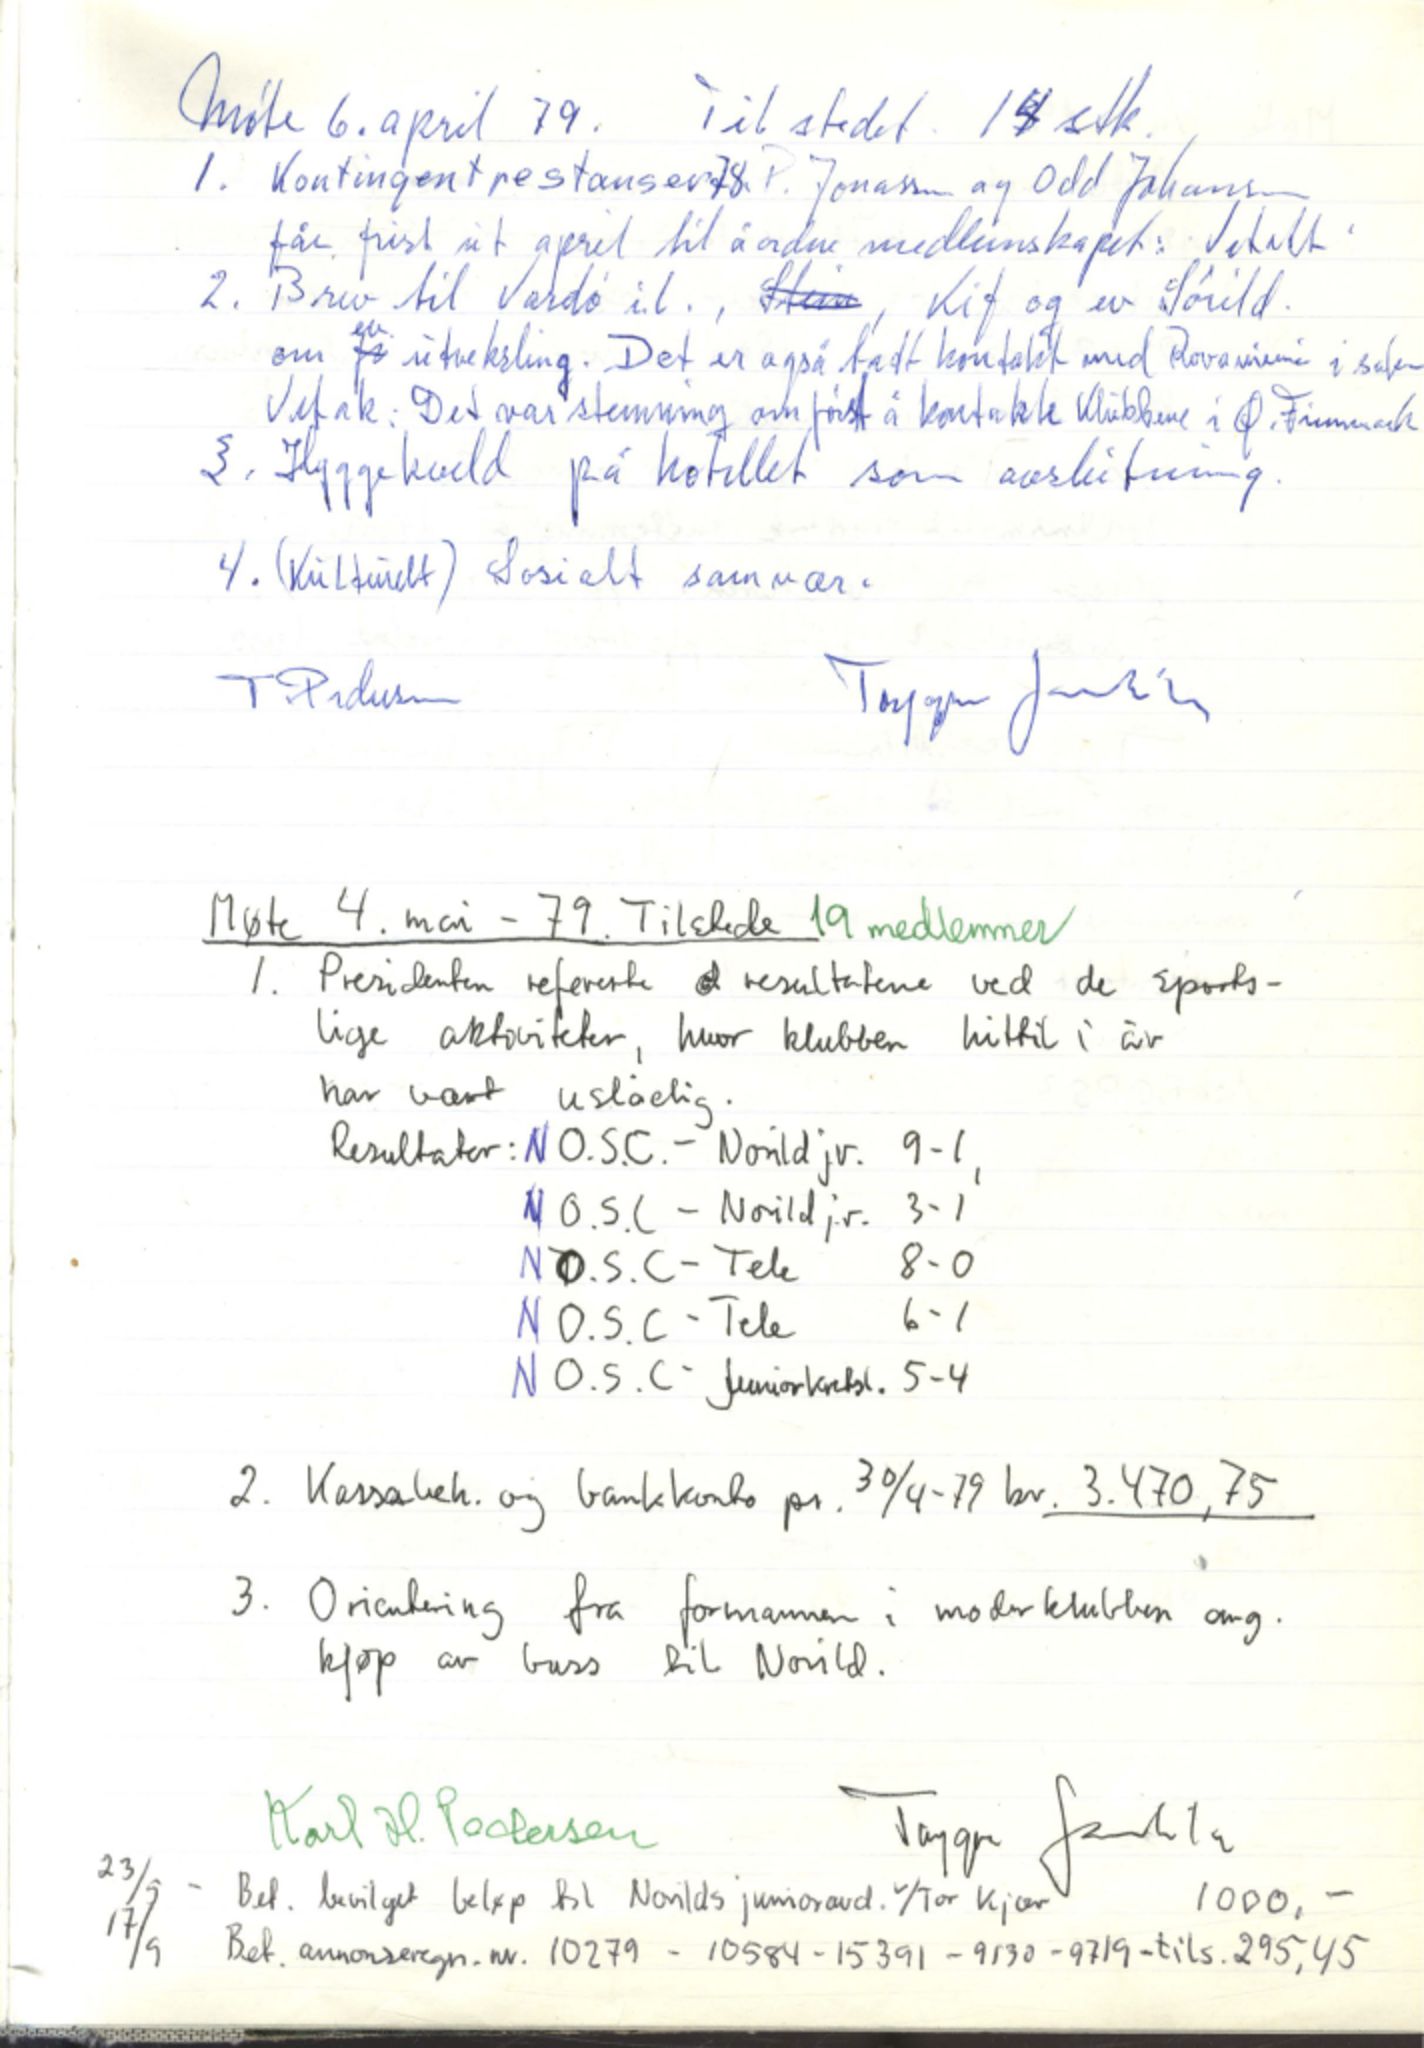 Møte 6. april 79. Til stedet. 18 stk.
1. Kontingentrestanser 78. P. Jonassen og Odd Johansen
får frist ut april til å ordne medlemskapet: Vetatt.
2. Brev til Vardø i.l., Kif og ev Sørild.
om ev. utveksling. Det er også tadt kontakt med Rovaniemi i saken
Vetak: Det var stemning om først å kontakte klubbene i Ø. Finnmark
3. Hyggekveld på hotellet som avslutning.
4. (Kulturelt) Sosialt samvær.
T Pedersen Trygge
Møte 4. mai - 79. Tilstede 19 medlemmer
1. Presidenten refererte resultatene ved de sports-
lige aktiviteter, hvor klubben hittil i år
har vært uslåelig.
Resultater: N O.S.C. - Norild jr. 9-1,
N O.S.C - Norild jr. 3-1
N O.S.C - Tele 8-0
N O.S.C - Tele 6-1
N O.S.C - Juniorkretsl. 5-4
2. Kassabeh. og bankkonto pr. 30/4-79 kr. 3.470,75
3. Orientering fra formannen i moderklubben ang.
kjøp av buss til Norild.
Karl H. Pedersen Trygge
23/5 - Bet. bevilget beløp til Norilds juniioravd. v/Tor Kjær 1000,-
17/9 Bet. annonseregn. nr. 10279 - 10584 - 15391 - 9130 - 9719 - tils. 295,45